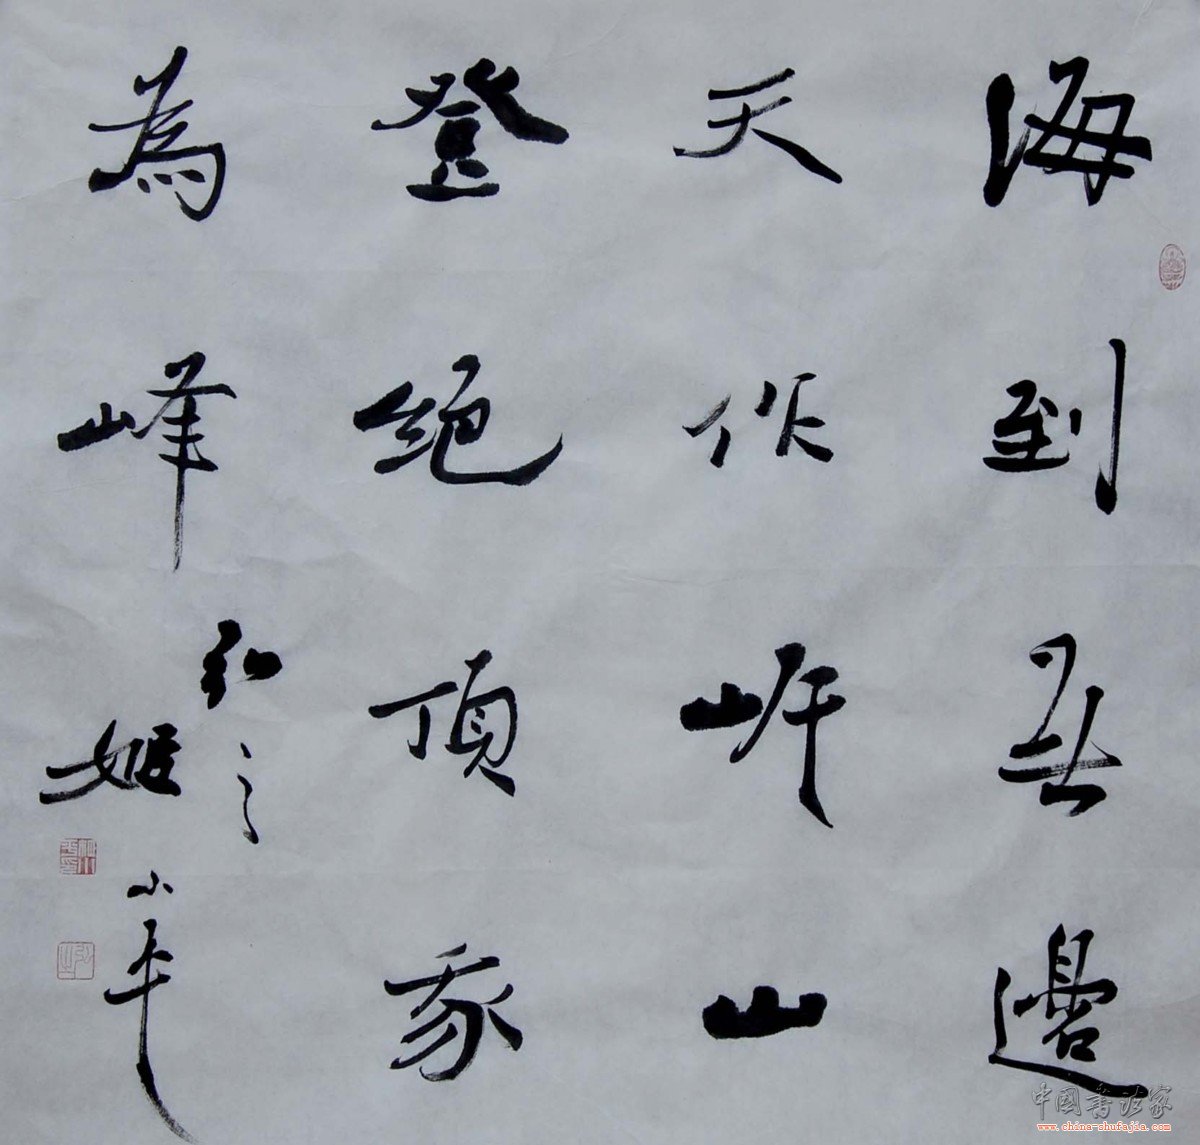 海到无邊
天作岸山
登绝頂我
為峰
弘之
姬小平
中国书法家
www.china-shufajia.com